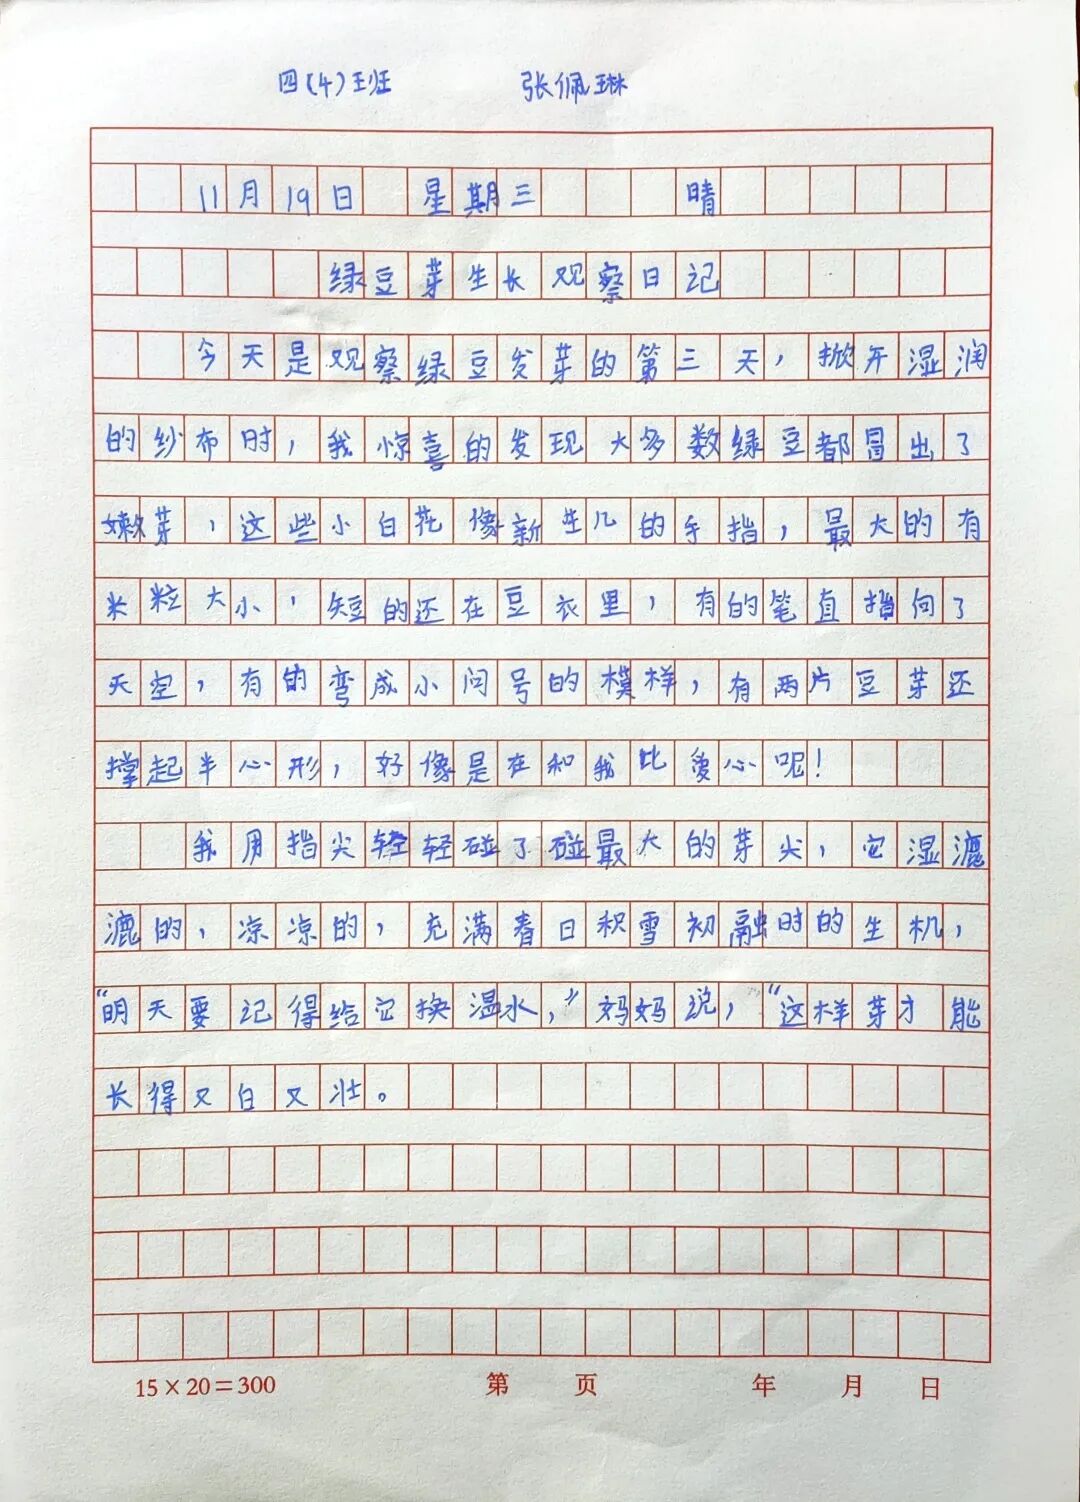 四(4)班 张佩琳
11月19日 星期三 晴
绿豆芽生长观察日记
今天是观察绿豆发芽的第三天，掀开湿润
的纱布时，我惊喜的发现大多数绿豆都冒出了
嫩芽，这些小白花像新生儿的手指，最大的有
米粒大小，短的还在豆衣里，有的笔直指向了
天空，有的弯成小问号的模样，有两片豆芽还
撑起半心形，好像是在和我比爱心呢！
我用指尖轻轻碰了碰最大的芽尖，它湿漉
漉的，凉凉的，充满春日积雪初融时的生机，
“明天要记得给它换温水，”妈妈说，“这样芽才能
长得又白又壮。
15×20=300 第 页 年 月 日